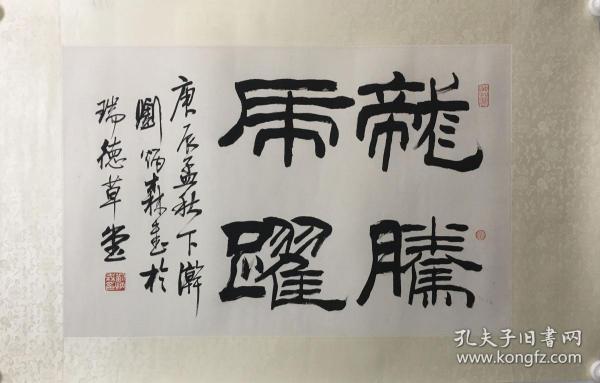 龍騰
虎躍
庚辰孟秋下澣
劉炳森書於
瑞德草堂
孔夫子旧书网
www.kongfz.com